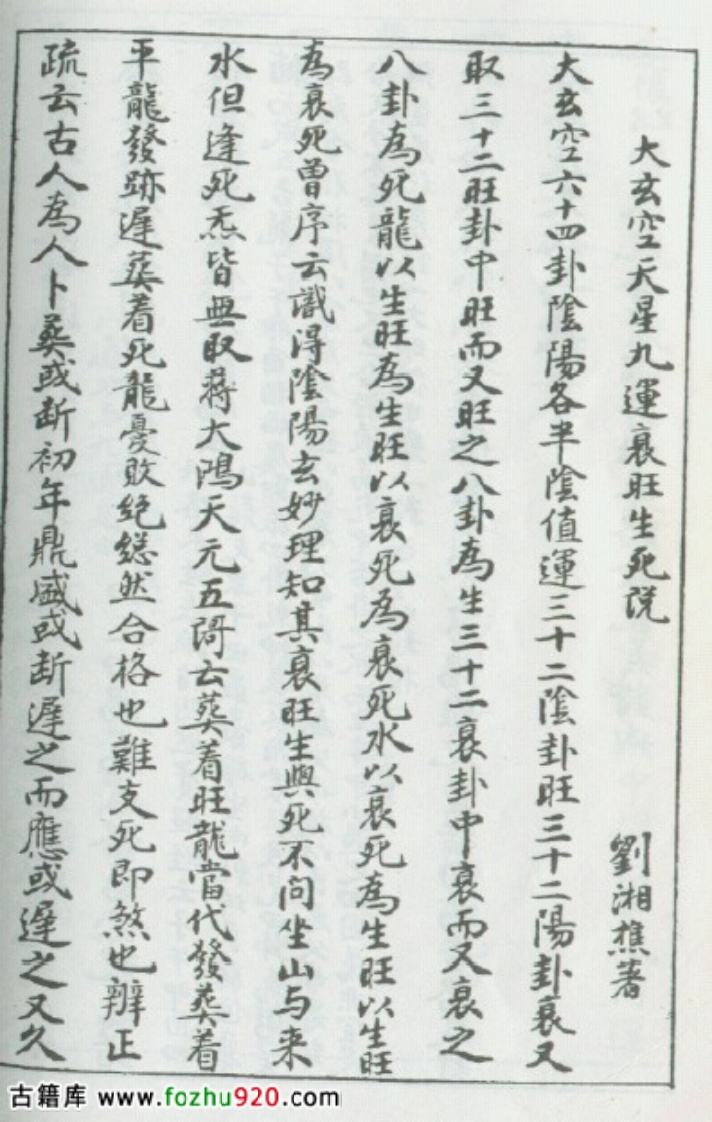 大玄空天星九運衰旺生死說　劉湘樵著
大玄空六十四卦陰陽各半陰值運三十二陰卦旺三十二陽卦衰又
取三十二旺卦中旺而又旺之八卦為生三十二衰卦中衰而又衰之
八卦為死龍以生旺為生旺以衰死為衰死水以衰死為生旺以生旺
為衰死曾序云識得陰陽玄妙理知其衰旺生與死不问坐山与来
水但逢死炁皆無取蔣大鴻天元五謌云葬着旺龍當代發葬着
平龍發跡遲葬着死龍憂敗絕縂然合格也難支死即煞也辨正
疏云古人為人卜葬或断初年鼎盛或断遲之而應或遲之又久
古籍库 www.fozhu920.com